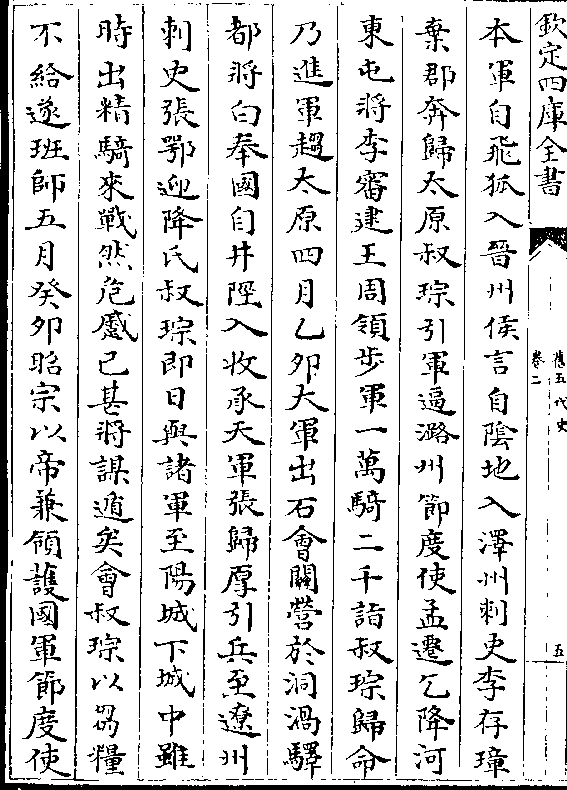 欽定四庫全書
舊五代史
卷二
五
本軍自飛狐入晉州侯言自陰地入澤州刺史李存璋
棄郡奔歸太原叔琮引軍逼潞州節度使孟遷乞降河
東屯將李審建王周領步軍一萬騎二千詣叔琮歸命
乃進軍趨太原四月乙卯大軍出石會關營於洞渦驛
都將白奉國自井陘入收承天軍張歸厚引兵至遼州
刺史張鄂迎降氏叔琮即日與諸軍至陽城下城中雖
時出精騎來戰然危蹙已甚將謀遁矣會叔琮以芻糧
不給遂班師五月癸卯昭宗以帝兼領護國軍節度使